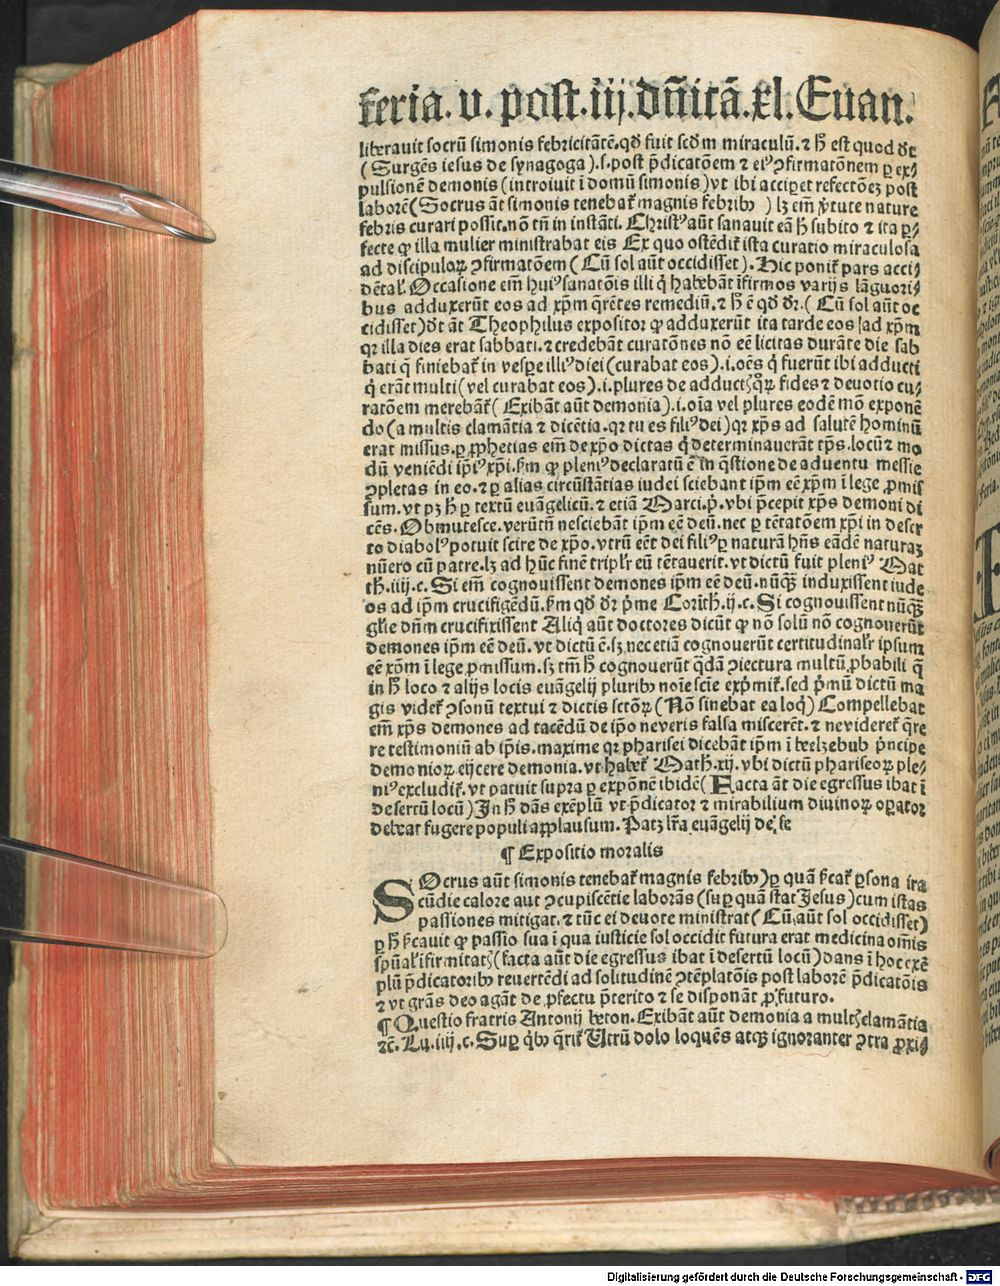 feria. v. post. iij. dñicã. xl. Euan.
liberauit socrũ simonis febricitãtẽ. qđ fuit scđm miraculũ. ⁊ ħ est quod dr̃
(Surgẽs iesus de synagoga). s. post p̃dicatõem ⁊ eiꝰ ꝯfirmatõnem ꝑ ex⸗
pulsionẽ demonis (introiuit ĩ domũ simonis) vt ibi acciꝑet refectõeʒ post
laborẽ (Socrus ãt simonis tenebat᷑ magnis febribꝫ ) lʒ em̃ v̓tute nature
febris curari possit. nõ tñ in instãti. Christꝰ aũt sanauit eã ħ subito ⁊ ita ꝑ⸗
fecte ꝙ illa mulier ministrabat eis Ex quo ostẽdit᷑ ista curatio miraculosa
ad discipuloꝝ ꝯfirmatõem (Cũ sol aũt occidisset). Hic ponit᷑ pars acci⸗
dẽtal᷑. Occasione em̃ huiꝰ sanatõis illi q̓ habebãt ĩfirmos varijs lãguori⸗
bus adduxerũt eos ad xp̃m q̃rẽtes remediũ. ⁊ ħ ẽ qđ dr̃. (Cũ sol aũt oc
cidisset) dt̃ ãt Theophilus expositor ꝙ adduxerũt ita tarde eos ad xp̃m
qꝛ illa dies erat sabbati. ⁊ credebãt curatõnes nõ eẽ licitas durãte die sab
bati q̃ finiebat᷑ in vesꝑe illiꝰ diei (curabat eos). i. oẽs q̓ fuerũt ibi adducti
q̓ erãt multi (vel curabat eos). i. plures de adductꝭ qꝛꝝ fides ⁊ deuotio cu⸗
ratõem merebãt᷑ (Exibãt aũt demonia). i. oĩa vel plures eodẽ mõ exponẽ
do (a multis clamãtia ⁊ dicẽtia. qꝛ tu es filiꝰ dei) qꝛ xp̃s ad salutẽ hominũ
erat missus. ꝑ ꝓphetias em̃ de xp̃o dictas q̓ determinauerãt tp̃s. locũ ⁊ mo
dũ veniẽdi ip̃iꝰ xp̃i. ẜm ꝙ pleniꝰ declaratũ ẽ in q̃stione de aduentu messie
ꝯpletas in eo. ⁊ ꝑ alias circũstãtias iudei sciebant ip̃m eẽ xp̃m ĩ lege ꝓmis
sum. vt pʒ ħ ꝑ textũ euãgelicũ. ⁊ etiã Marci. p̓. vbi p̃cepit xp̃s demoni di
cẽs. Obmutesce. verũtñ nesciebãt ip̃m eẽ deũ. nec ꝑ tẽtatõem xp̃i in deser
to diabolꝰ potuit scire de xp̃o. vtrũ eẽt dei filiꝰ ꝑ naturã hñs eãdẽ naturaʒ
nũero cũ patre. lʒ ad hũc finẽ tripl᷑r eũ tẽtauerit. vt dictũ fuit pleniꝰ Mat
tħ. iiij. c. Si em̃ cognouissent demones ip̃m eẽ deũ. nũq̃ʒ induxissent iude
os ad ip̃m crucifigẽdũ. ẜm qđ dr̃ p̓me Corĩtħ. ij. c. Si cognouissent nũq̃ʒ
gl᷑ie dñm crucifixissent Aliq̓ aũt doctores dicũt ꝙ nõ solũ nõ cognouerũt
demones ip̃m eẽ deũ. vt dictũ ẽ. sʒ nec etiã cognouerũt certitudinal᷑r ipsum
eẽ xp̃m ĩ lege ꝓmissum. sʒ tm̃ ħ cognouerũt q̃dã ꝯiectura multũ ꝓbabili q̃
in ħ loco ⁊ alijs locis euãgelij pluribꝫ noĩe sciẽ exp̓mit᷑. sed p̓mũ dictũ ma
gis videt᷑ ꝯsonũ textui ⁊ dictis sctõꝝ (Nõ sinebat ea loq̓) Compellebat
em̃ xp̃s demones ad tacẽdũ de ip̃o ne veris falsa miscerẽt. ⁊ ne videret᷑ q̃re
re testimoniũ ab ip̃is. maxime qꝛ pharisei dicebãt ip̃m ĩ beelʒebub p̓ncipe
demonioꝝ eijcere demonia. vt habet᷑ Matħ. xij. vbi dictũ phariseoꝝ ple⸗
niꝰ excludit᷑. vt patuit supra ꝑ expõnẽ ibidẽ (Facta ãt die egressus ibat ĩ
desertũ locũ) In ħ dãs exẽplũ vt p̃dicator ⁊ mirabilium diuinoꝝ oꝑator
debeat fugere populi applausum. Patʒ lr̃a euãgelij de se
¶ Expositio moralis
SOcrus aũt simonis tenebat᷑ magnis febribꝫ) ꝑ quã ẜcat᷑ ꝑsona ira
cũdie calore aut ꝯcupiscẽtie laborãs (suꝑ quã stat Jesus) cum istas
passiones mitigat. ⁊ tũc ei deuote ministrat (Cũ aũt sol occidisset)
ꝑ ħ ẜcauit ꝙ passio sua ĩ qua iusticie sol occidit futura erat medicina om̃is
spũal᷑ ĩfirmitatꝭ (facta aũt die egressus ibat ĩ desertũ locũ) dans ĩ hoc exẽ
plũ p̃dicatoribꝫ reuertẽdi ad solitudinẽ ꝯtẽplatõis post laborẽ p̃dicatõis
⁊ vt grãs deo agãt de ꝓfectu p̃terito ⁊ se disponãt ꝓ futuro.
¶ Questio fratris Antonij beton. Exibãt aũt demonia a multꝭ clamãtia
⁊c̃. Lu. iiij. c. Suꝑ q̓bꝫ q̃rit᷑ Utrũ dolo loquẽs atqꝫ ignoranter ꝯtra ꝓxi⸗
Digitalisierung gefördert durch die Deutsche Forschungsgemeinschaft - DFG